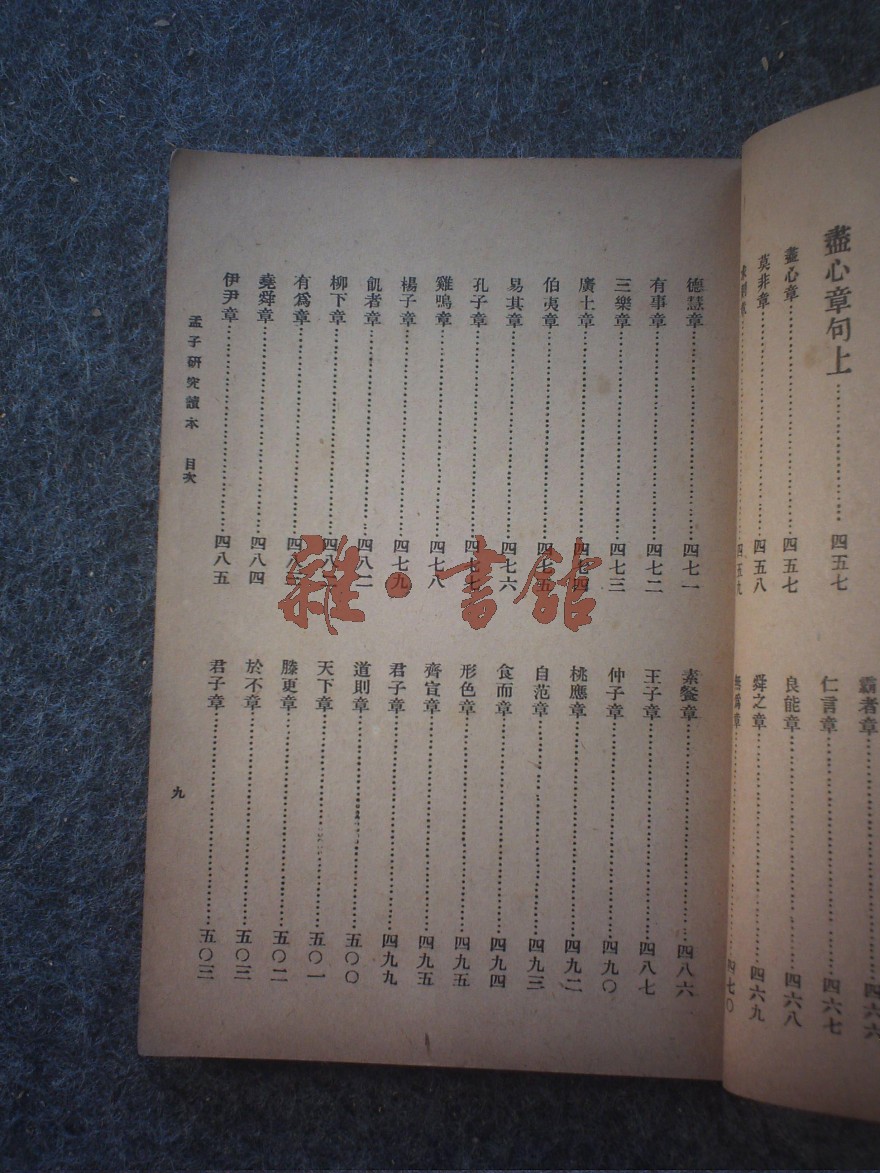 盡心章句上……四五七
盡心章……四五七
莫非章……四五八
四五九
霸者章……四六六
仁言章……四六七
良能章……四六八
舜之章……四六九
無爲章……四七〇
德慧章……四七一
有事章……四七二
三樂章……四七三
廣土章……四七四
伯夷章……四七五
易其章……四七六
孔子章……四七七
雞鳴章……四七八
楊子章……四七九
飢者章……四八二
柳下章……四八
有爲章……四八
堯舜章……四八四
伊尹章……四八五
素餐章……四八六
王子章……四八七
仲子章……四九〇
桃應章……四九二
自范章……四九三
食而章……四九四
形色章……四九五
齊宣章……四九五
君子章……四九九
道則章……五〇〇
天下章……五〇一
滕更章……五〇二
於不章……五〇三
君子章……五〇三
孟子研究讀本 目次
九
雜·書館